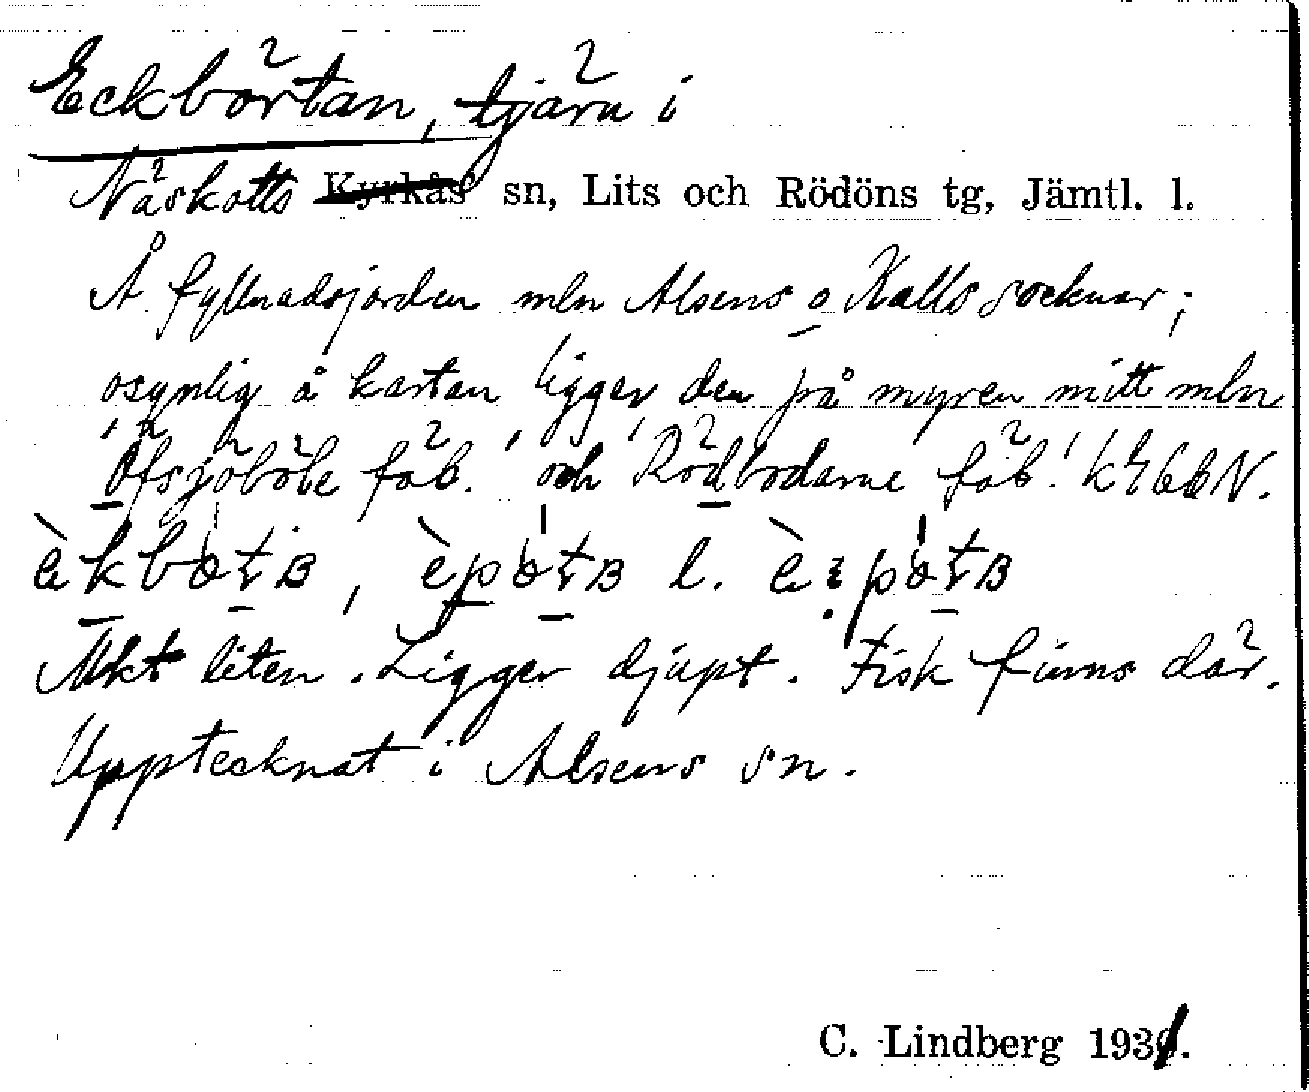 Eckbörtan, tjärn i
Näskotts Kyrkås sn, Lits och Rödöns tg, Jämtl. l.
Å fyllnadsjorden mln Alsens o Kalls socknar;
osynlig å kartan, ligger, den på myren mitt mln
Öfsjöböle fäb. och Rödbodarne fäb.
Mkt liten. Ligger djupt. Fisk finns där.
Upptecknat i Alsens sn.
C. Lindberg 1931.